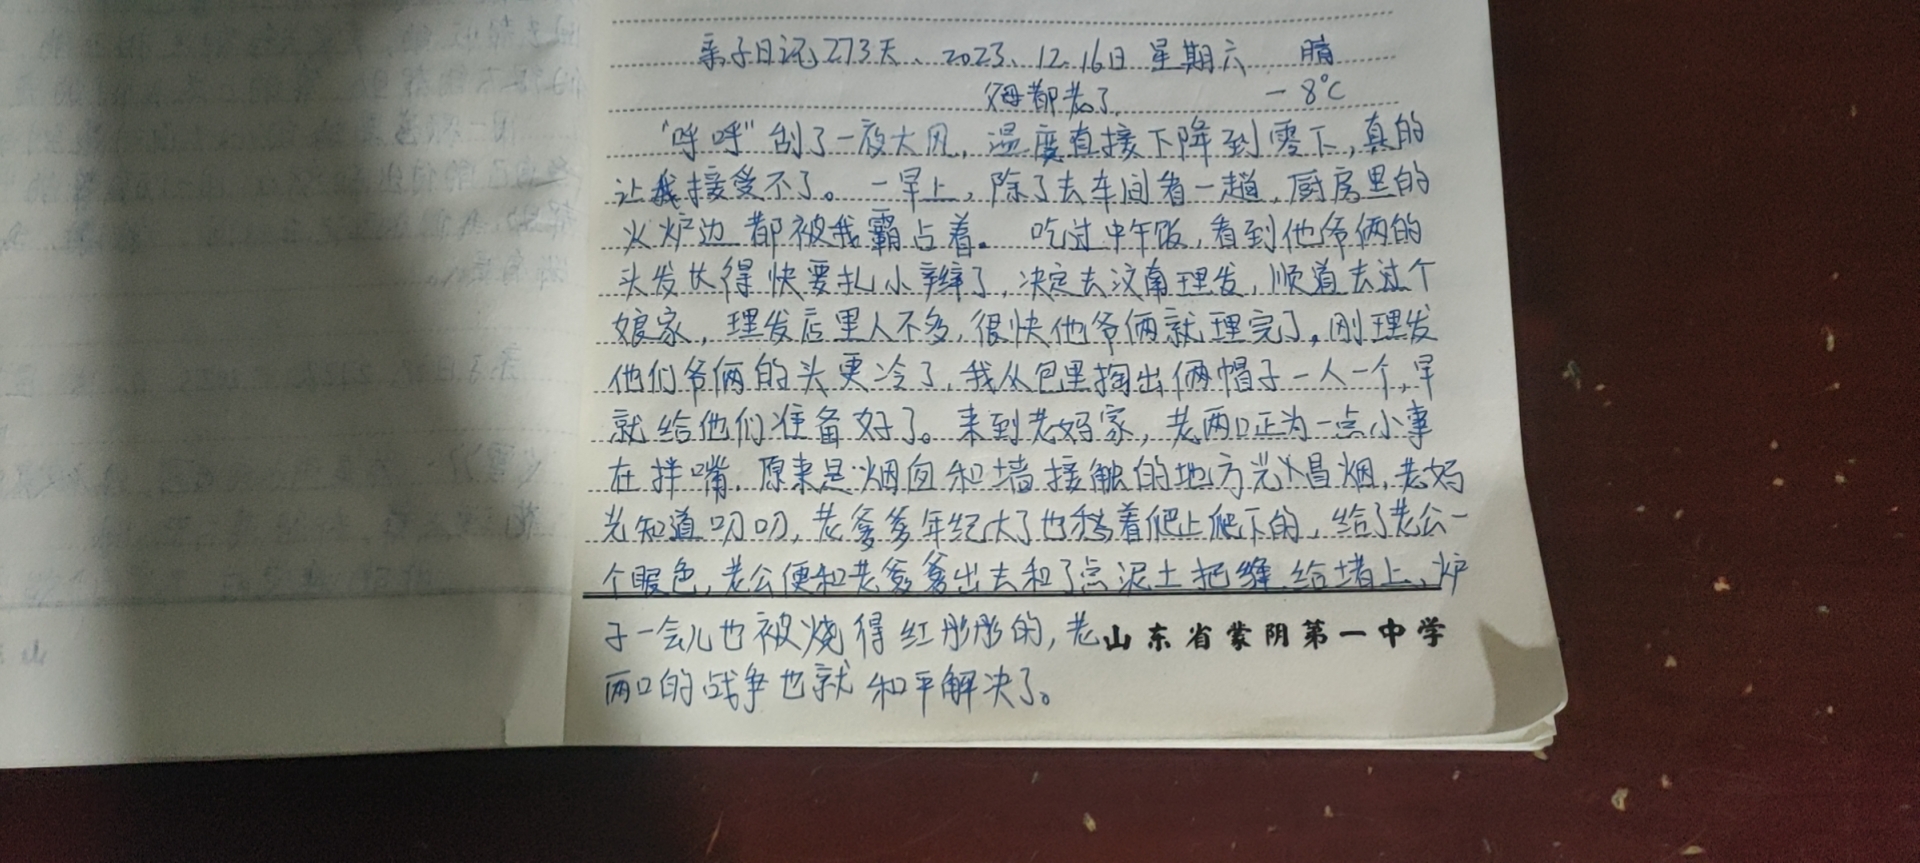 亲子日记273天、2023、12.16日 星期六 晴
父母都老了 -8℃
"呼呼"刮了一夜大风，温度直接下降到零下，真的
让我接受不了。一早上，除了去车间看一趟，厨房里的
火炉边都被我霸占着。吃过中午饭，看到他爷俩的
头发长得快要扎小辫了，决定去汶南理发，顺道去过个
娘家，理发店里人不多，很快他爷俩就理完了。刚理发
他们爷俩的头更冷了，我从包里掏出俩帽子一人一个，早
就给他们准备好了。来到老妈家，老两口正为一点小事
在拌嘴，原来是烟囱和墙接触的地方光冒烟，老妈
光知道叨叨，老爹爹年纪大了也愁着爬上爬下的，给了老公一
个眼色，老公便和老爹爹出去和了点泥土把缝给堵上，炉
子一会儿也被烧得红彤彤的，老
山东省蒙阴第一中学
两口的战争也就和平解决了。